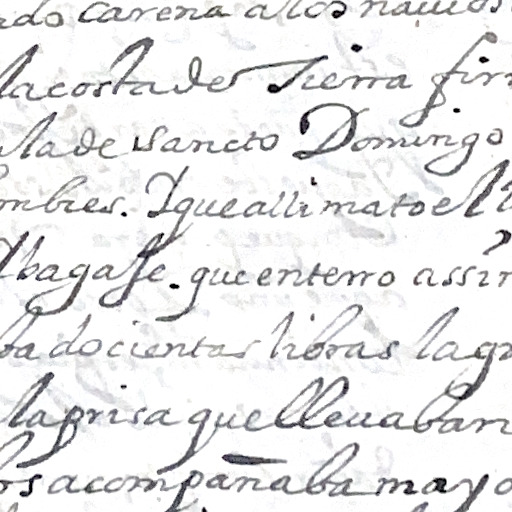 ado carena a los nauios
la costa de Tierra fir
ula de sancto Domingo
ombres. Y que alli mato el
Ybagase. que enterro assi
ba docientas libras la gr
la prisa que lleuaban
rs acompañaba mayo